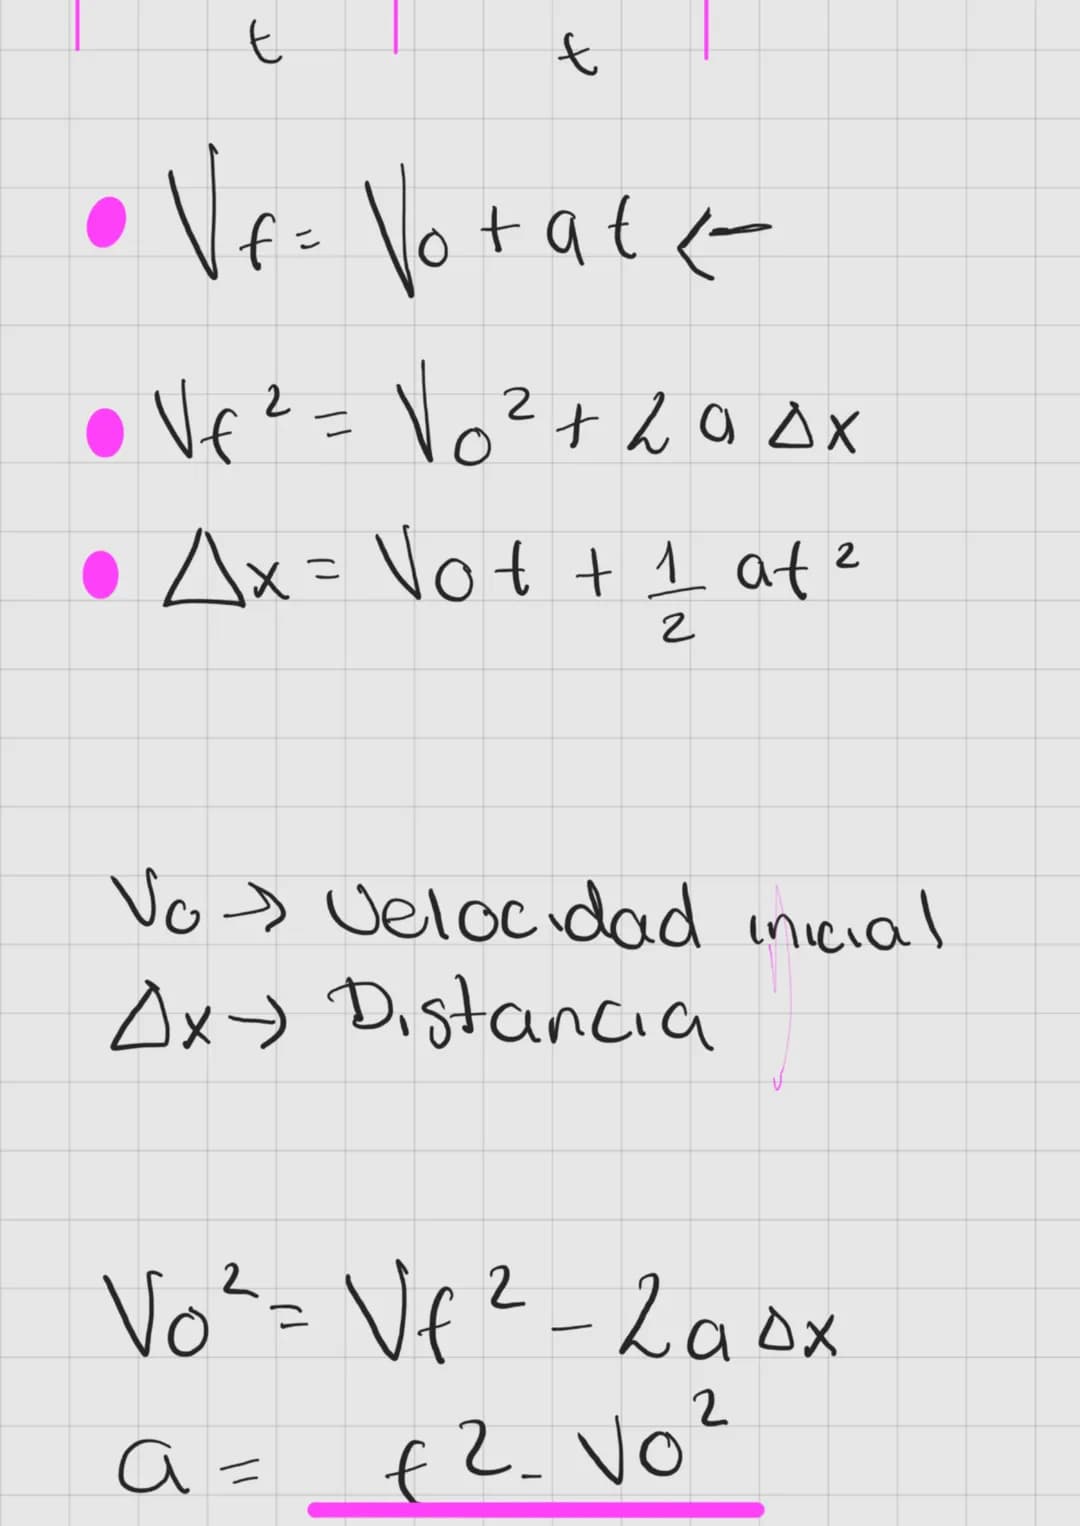 t t
Vf = Vo + at ←
Vf² = Vo² + 2a Δx
Δx = Vot + 1/2 at²
Vo → Velocidad inicial
Δx → Distancia
Vo² = Vf² - 2a Δx
a = f2 - Vo²